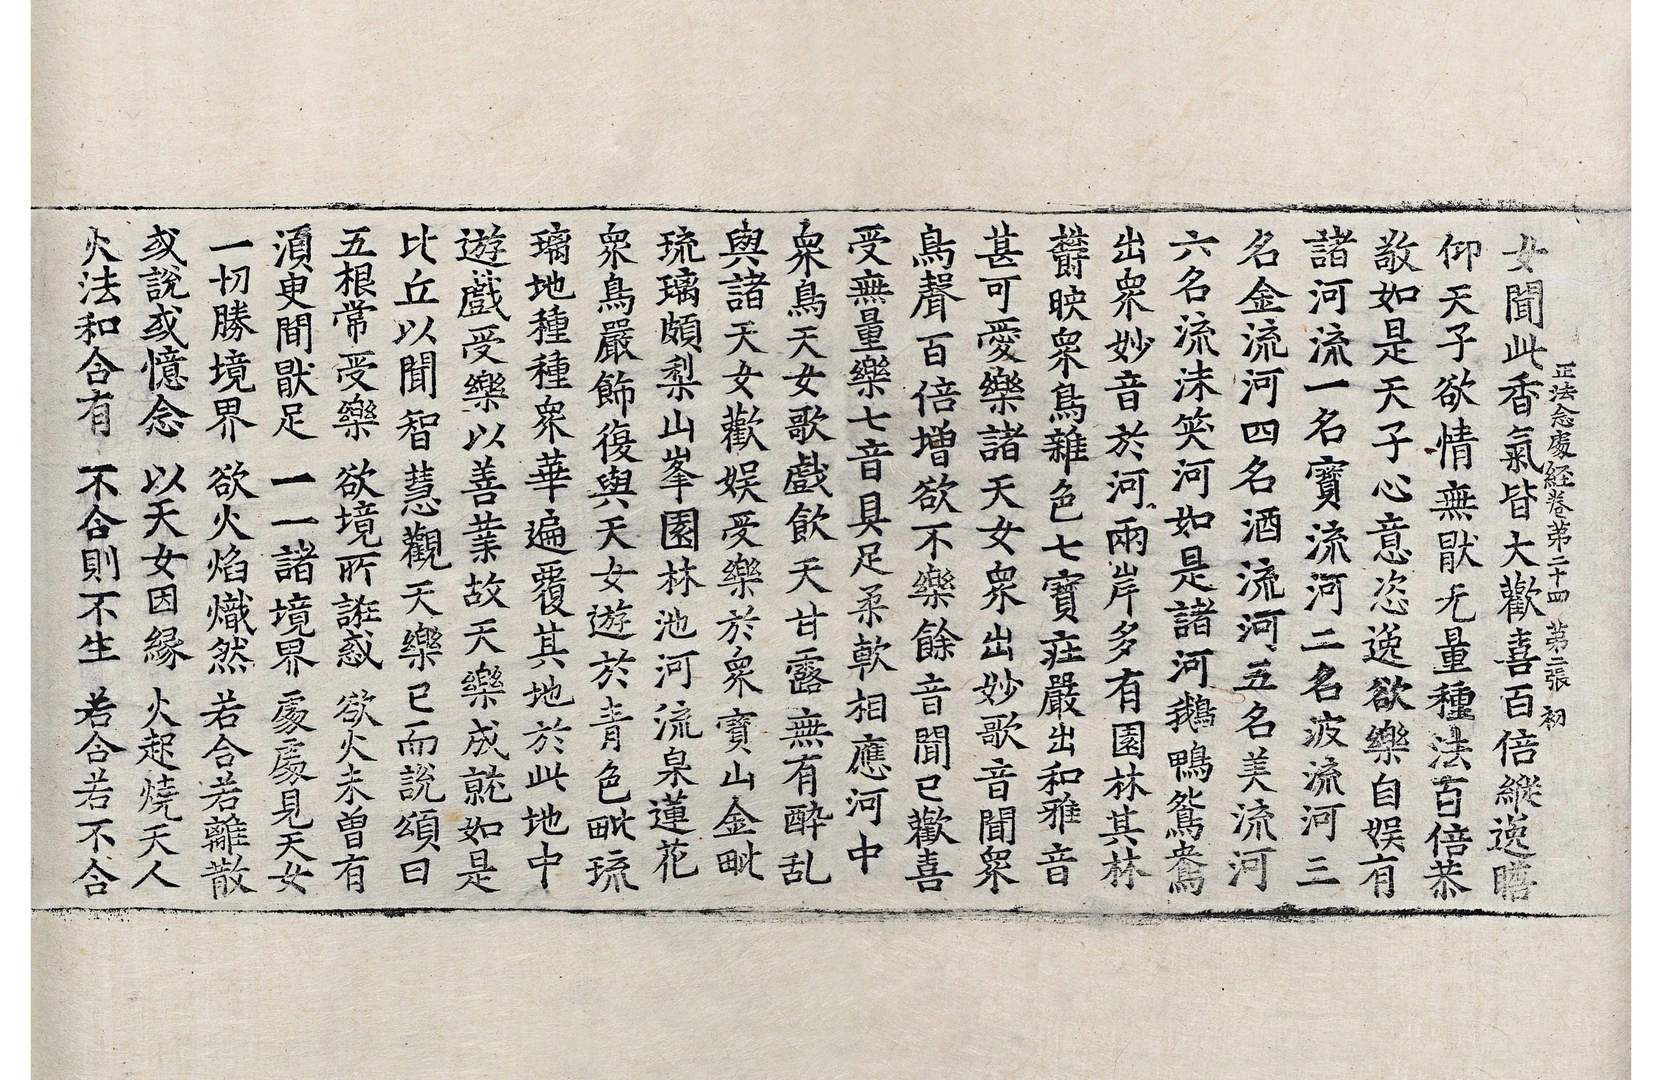 正法念處經卷第二十四 第二張 初
女聞此香氣皆大歡喜百倍縱逸瞻
仰天子欲情無猒无量種法百倍恭
敬如是天子心意恣逸欲樂自娛有
諸河流一名寶流河二名波流河三
名金流河四名酒流河五名美流河
六名流沫笑河如是諸河鵝鴨鴛鴦
出衆妙音於河兩岸多有園林其林
欝映衆鳥雜色七寶莊嚴出和雅音
甚可愛樂諸天女衆出妙歌音聞衆
鳥聲百倍增欲不樂餘音聞已歡喜
受無量樂七音具足柔軟相應河中
衆鳥天女歌戲飲天甘露無有醉乱
與諸天女歡娛受樂於衆寶山金毗
琉璃頗梨山峯園林池河流泉蓮花
衆鳥嚴飾復與天女遊於青色毗琉
璃地種種衆華遍覆其地於此地中
遊戲受樂以善業故天樂成就如是
比丘以聞智慧觀天樂已而說頌曰
五根常受樂 欲境所誑惑 欲火未曾有
須臾間猒足 一一諸境界 處處見天女
一切勝境界 欲火焰熾然 若合若離散
或說或憶念 以天女因緣 火起燒天人
火法和合有 不合則不生 若合若不合